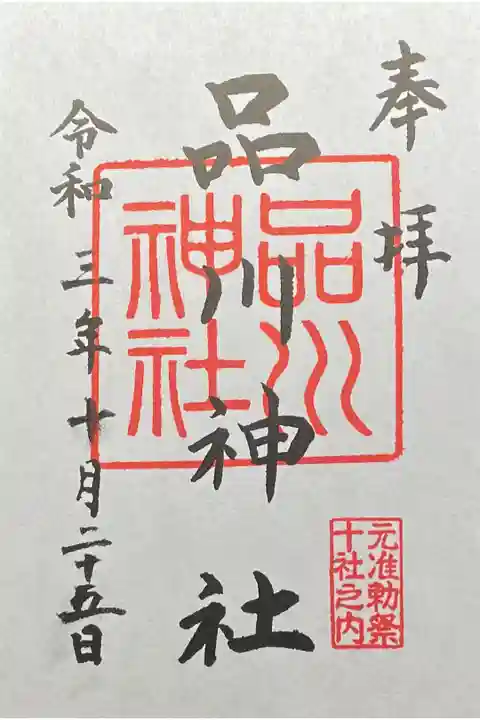 奉拝
品川神社
品川
神社
元准勅祭
十社之内
令和三年十月二十五日